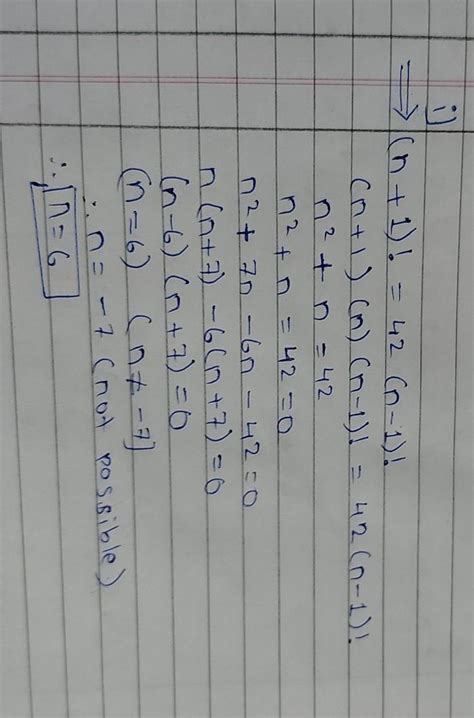 i)
⇒ (n+1)! = 42 (n-1)!
(n+1) (n) (n-1)! = 42 (n-1)!
n² + n = 42
n² + n = 42 = 0
n² + 7n - 6n - 42 = 0
n (n+7) - 6(n+7) = 0
(n-6) (n+7) = 0
(n = 6) (n ≠ -7]
∴ n = -7 (not possible)
∴ n = 6